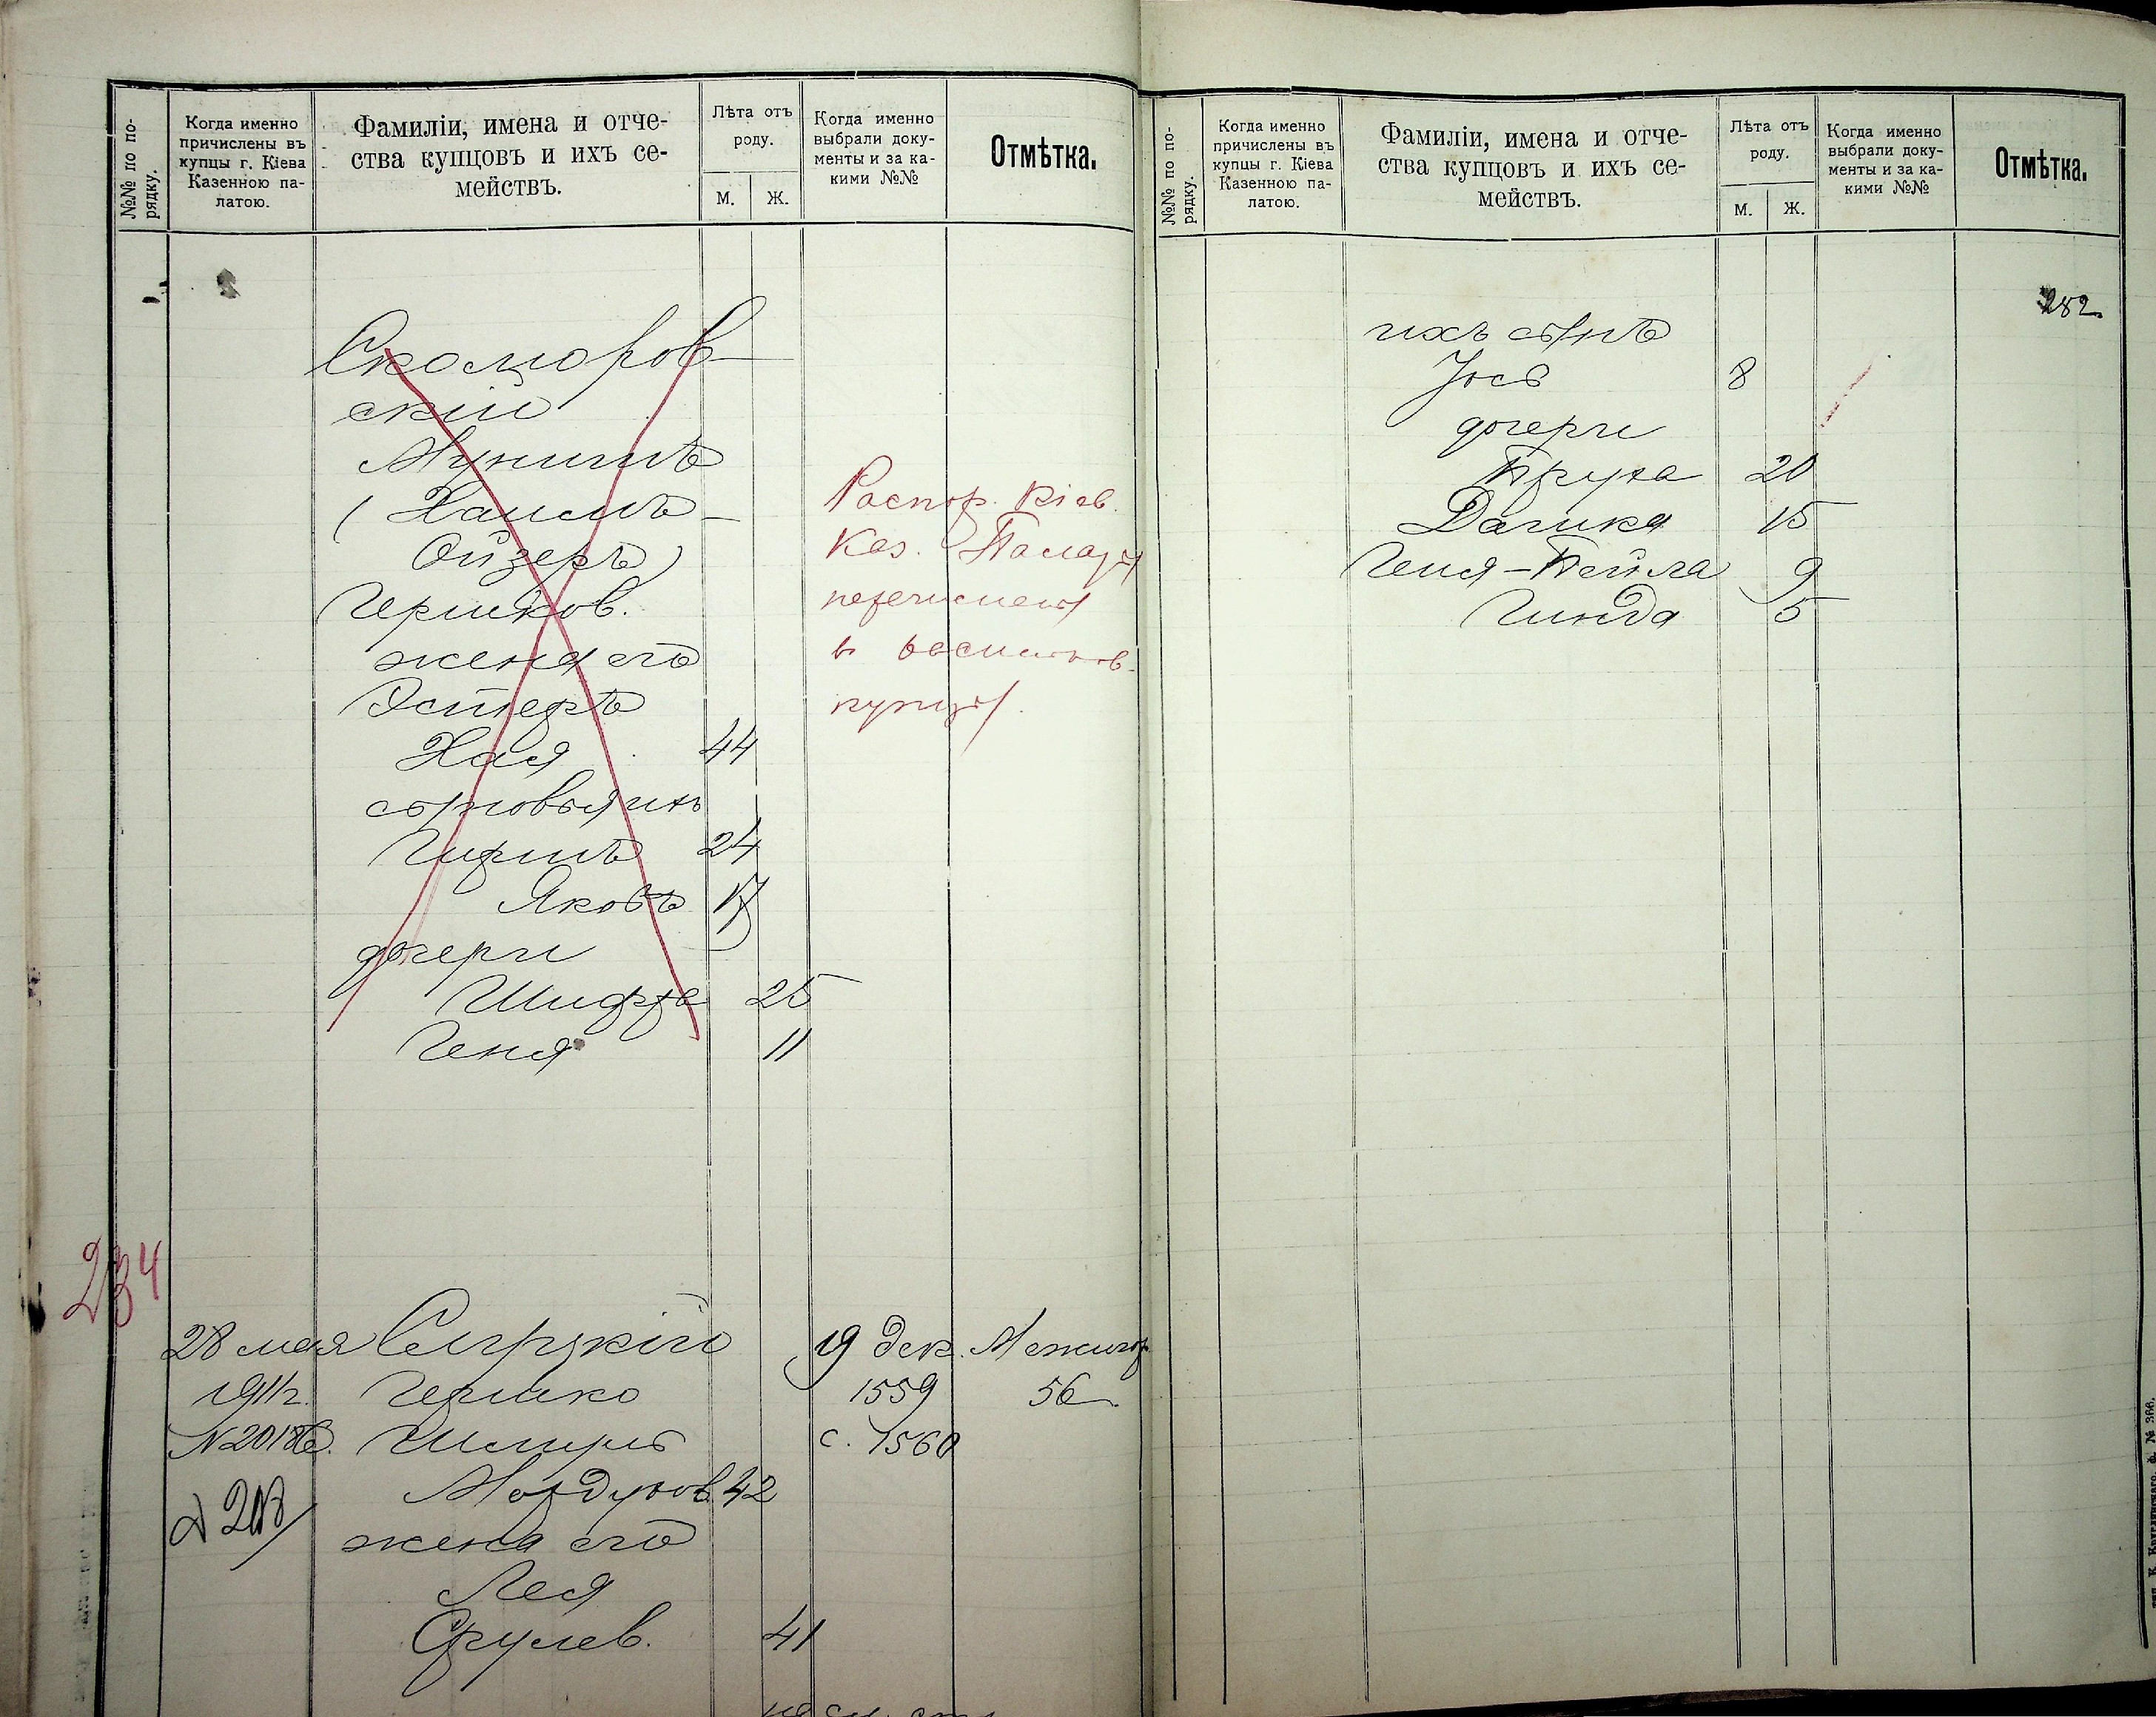 №№ по по-
рядку.
Когда именно
причислены въ
купцы г. Кіева
Казенною па-
латою.
Фамиліи, имена и отче-
ства купцовъ и ихъ се-
мействъ.
Лѣта отъ
роду.
М. Ж.
Когда именно
выбрали доку-
менты и за ка-
кими №№
Отмѣтка.
Скоморов-
скій
Мунишъ
(Хаимъ-
Ойзеръ)
Гершков.
жена его
Эстеръ
Хая 44
сыновья ихъ
Гиршъ 24
Яковъ 17
дочери
Шифра 25
Геня 11
Распор. Кіев.
Каз. Палаты
перечислены
в васильков.
купцы.
234
28 мая
1911 г.
№ 20186.
Сигрскій
Гершко
Шмуль
Мордухов. 42
жена его
Лея
Срулев. 41
19 дек.
1559
с. 1560
Межигор.
56
№№ по по-
рядку.
Когда именно
причислены въ
купцы г. Кіева
Казенною па-
латою.
Фамиліи, имена и отче-
ства купцовъ и ихъ се-
мействъ.
Лѣта отъ
роду.
М. Ж.
Когда именно
выбрали доку-
менты и за ка-
кими №№
Отмѣтка.
282
ихъ сынъ
Іось 8
дочери
Бруха 20
Дачика 15
Геня-Бейла 9
Гинда 5